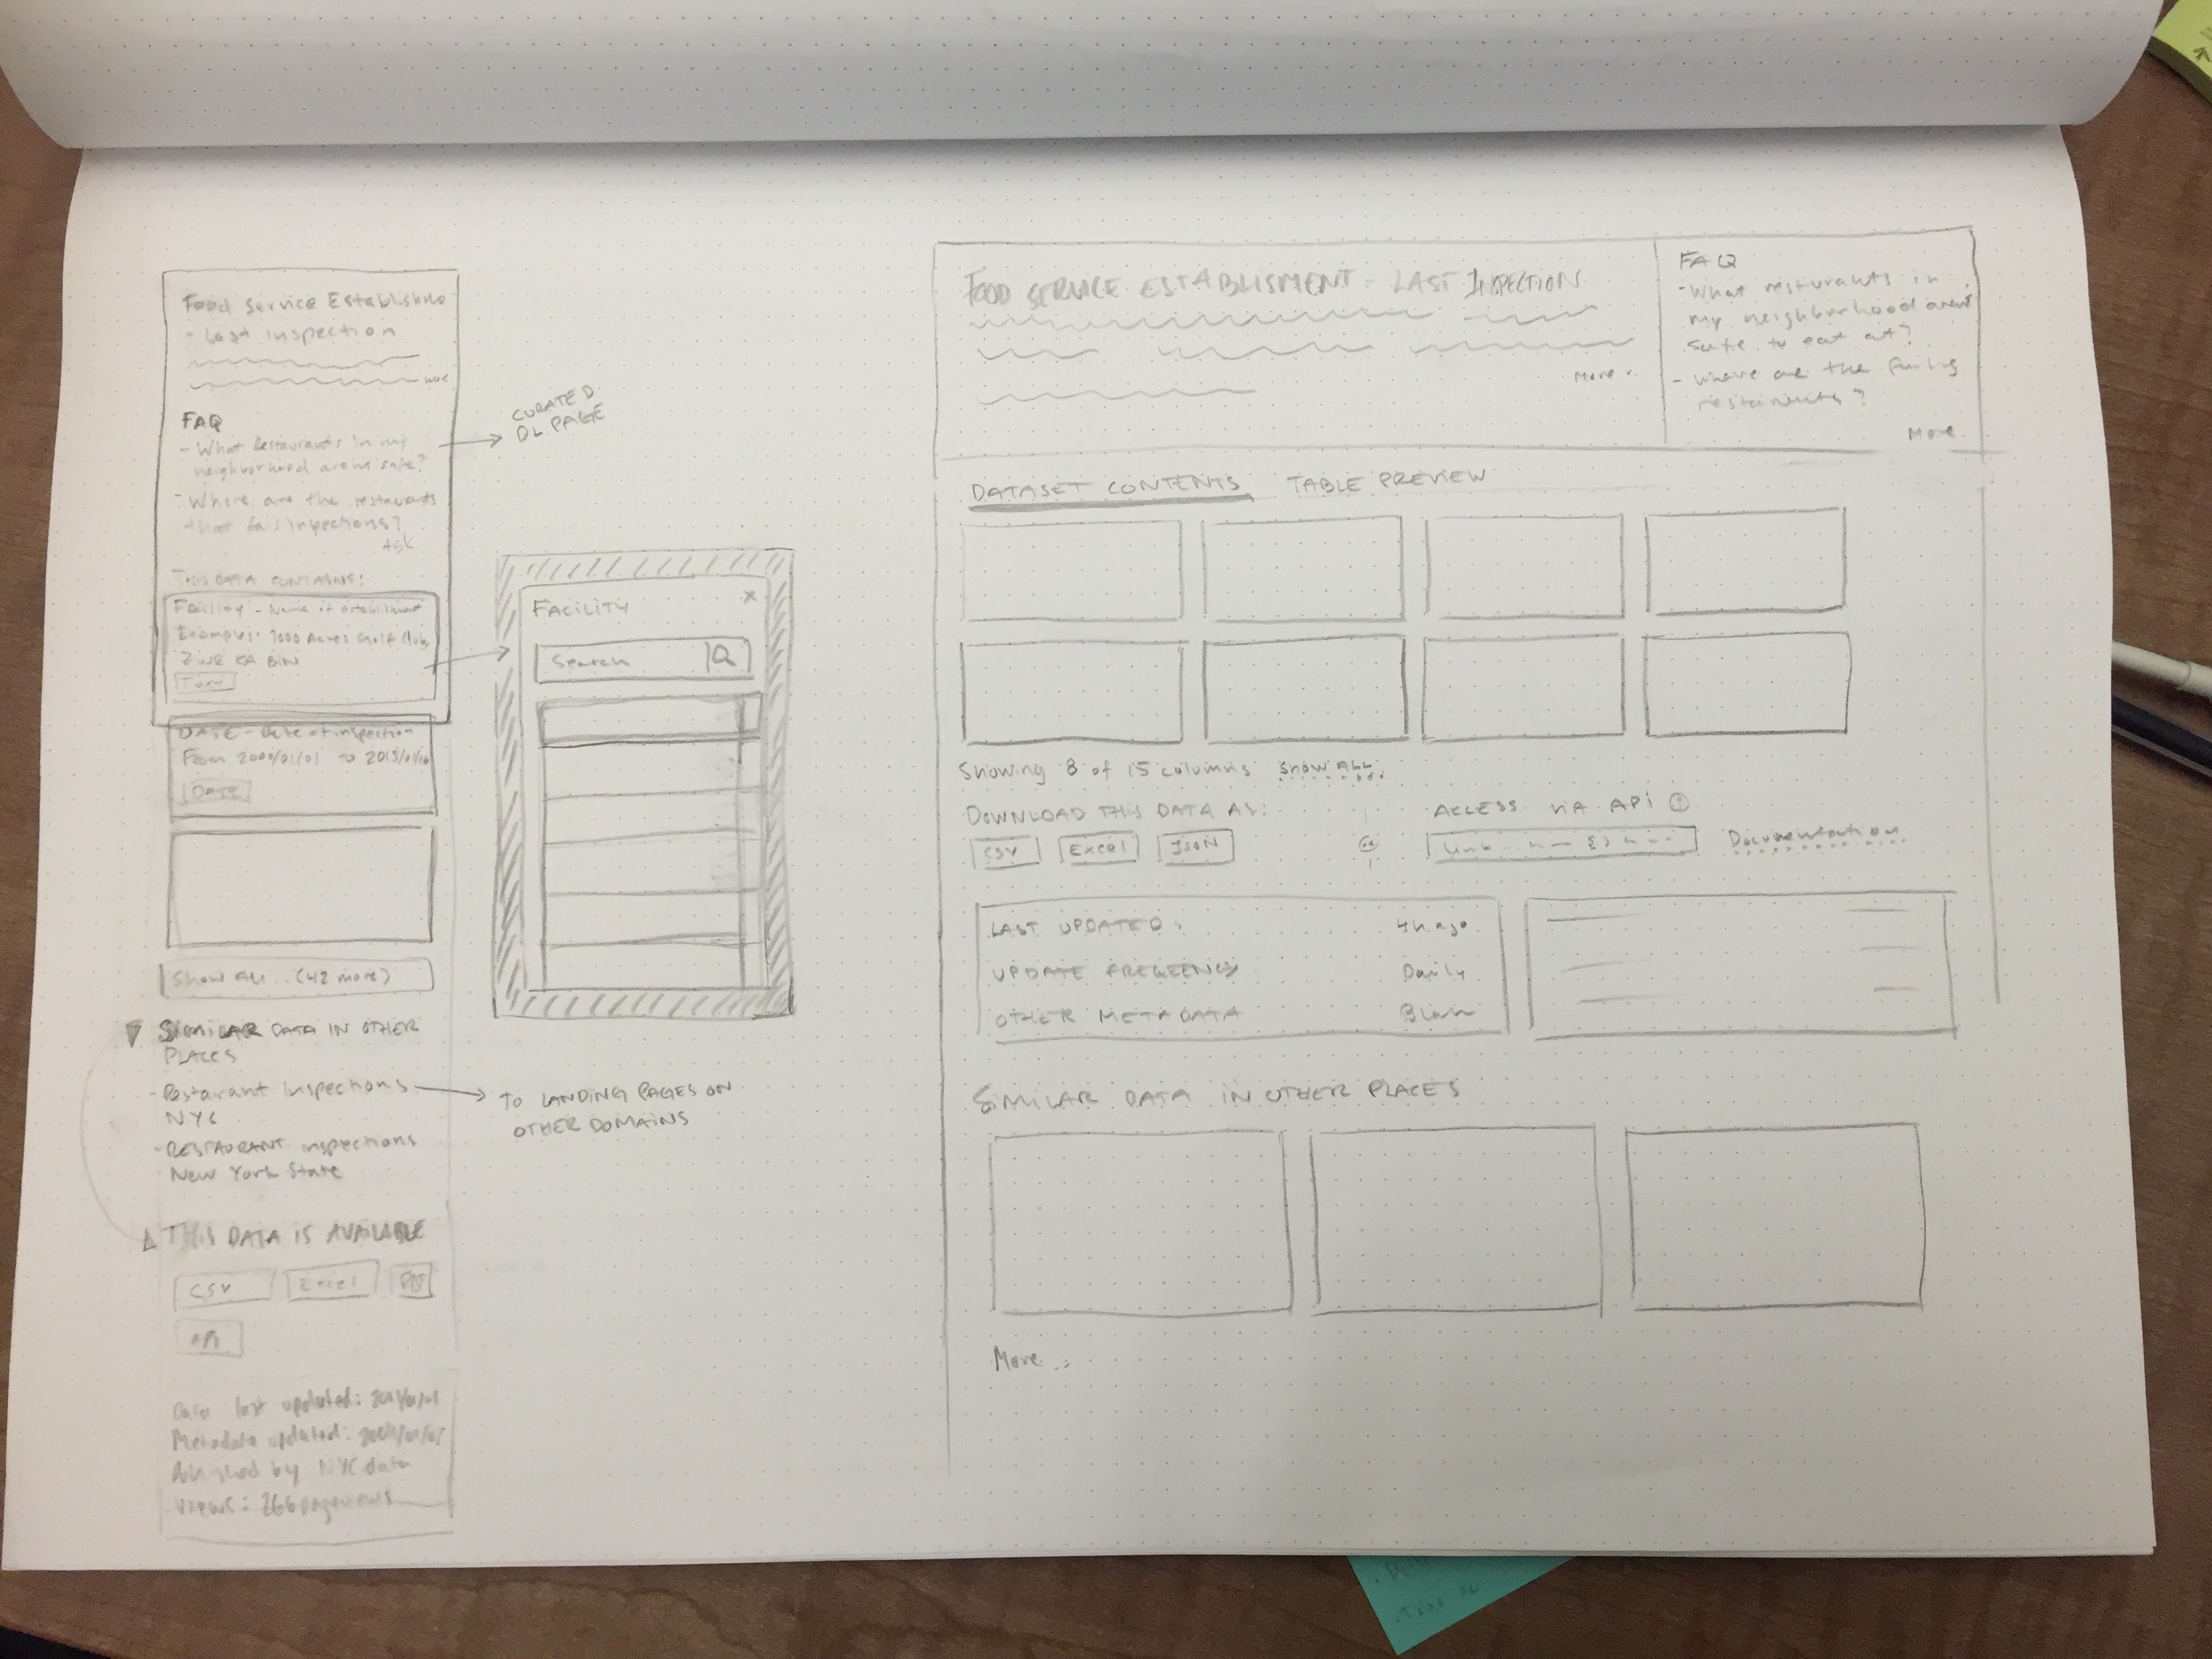 Food Service Establishm
- Last inspection
more
FAQ
- What Restaurants in my
neighborhood arent safe?
- Where are the restaurants
that fail inspections?
Ask
THIS DATA CONTAINS:
Facility - Name of establishment
Examples: 1000 Acres Golf Club,
ZWE KA BIN
Text
DATE - Date of inspection
From 2000/01/01 to 2015/01/
DATE
Show All (42 more)
SIMILAR DATA IN OTHER
PLACES
- Restarant Inspections
NYC
- RESTAURANT inspections
New York State
THIS DATA IS AVAILABLE
CSV Excel
API
Data last updated:
Metadata updated:
Published by NYC data
Views: 266 pageviews
CURATED
DL PAGE
FACILITY x
Search
TO LANDING PAGES ON
OTHER DOMAINS
FOOD SERVICE ESTABLISMENT - LAST INSPECTION
More
FAQ
- What resturants in
my neighborhood arent
safe to eat at?
- Where are the failing
More
DATASET CONTENTS TABLE PREVIEW
Showing 8 of 15 columns Show ALL
DOWNLOAD THIS DATA AS:
CSV Excel JSON
ACCESS VIA API
Documentation
LAST UPDATED: 4h ago
UPDATE FREQEENCY Daily
OTHER METADATA Blah
SIMILAR DATA IN OTHER PLACES
More..